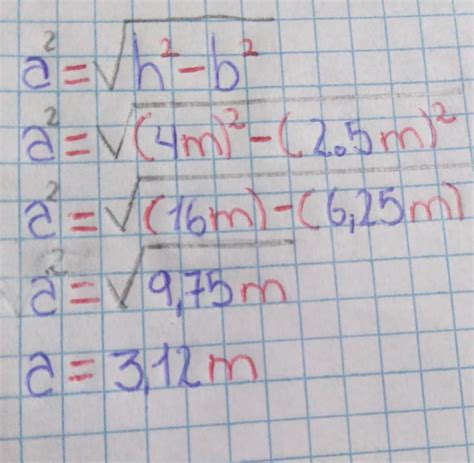 a² = √h² - b²
a² = √(4m)² - (2.5m)²
a² = √(16m) - (6,25m)
a² = √9,75m
a = 3,12m